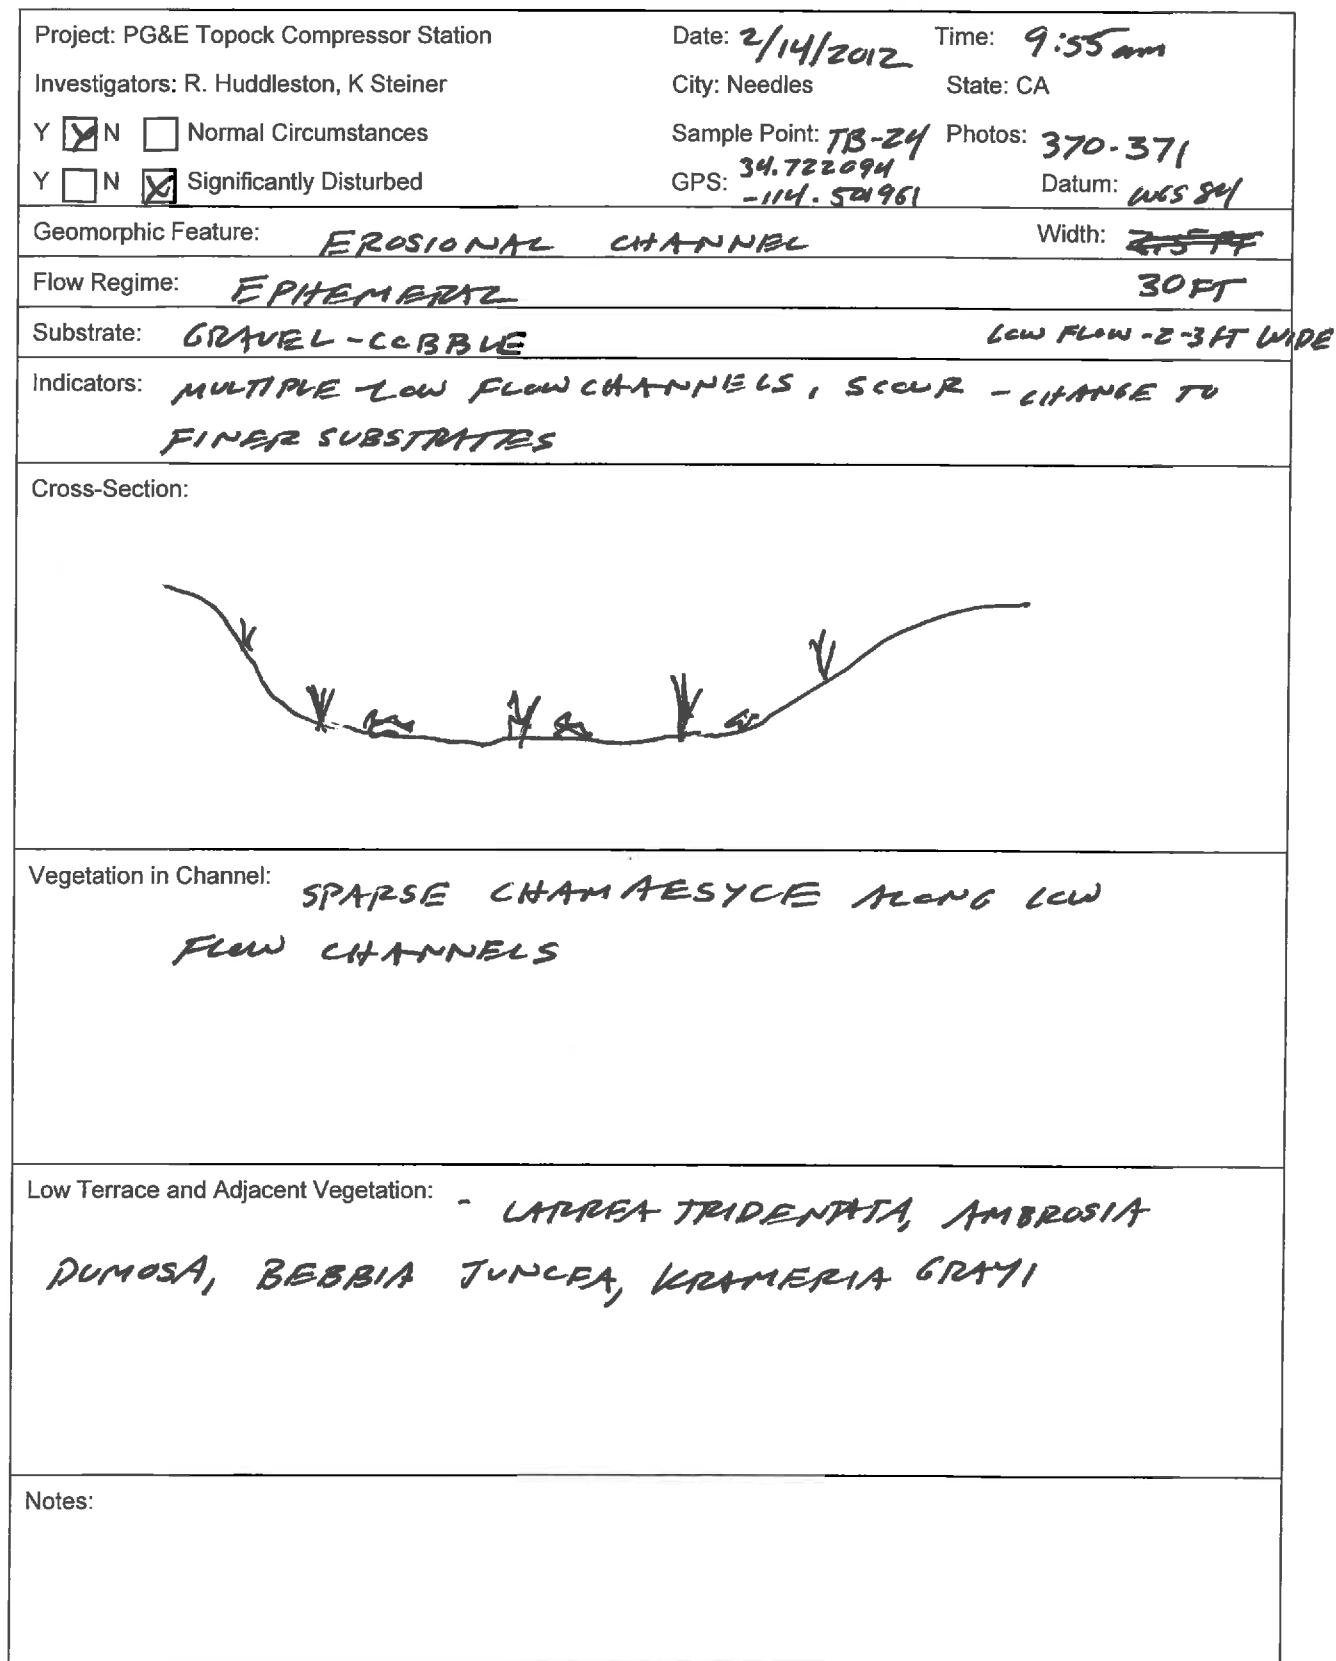 Project: PG&E Topock Compressor Station Date: 2/14/2012 Time: 9:55 am
Investigators: R. Huddleston, K Steiner City: Needles State: CA
Y N Normal Circumstances Sample Point: TB-24 Photos: 370-371
Y N Significantly Disturbed GPS: 34.722094
-114.501961 Datum: WGS 84
Geomorphic Feature: EROSIONAL CHANNEL Width: 2.5 FT
Flow Regime: EPHEMERAL 30 FT
Substrate: GRAVEL-COBBLE LOW FLOW-2-3 FT WIDE
Indicators: MULTIPLE LOW FLOW CHANNELS, SCOUR - CHANGE TO
FINER SUBSTRATES
Cross-Section:
Vegetation in Channel: SPARSE CHAMAESYCE ALONG LOW
FLOW CHANNELS
Low Terrace and Adjacent Vegetation: - LARREA TRIDENTATA, AMBROSIA
DUMOSA, BEBBIA JUNCEA, KRAMERIA GRAYI
Notes: